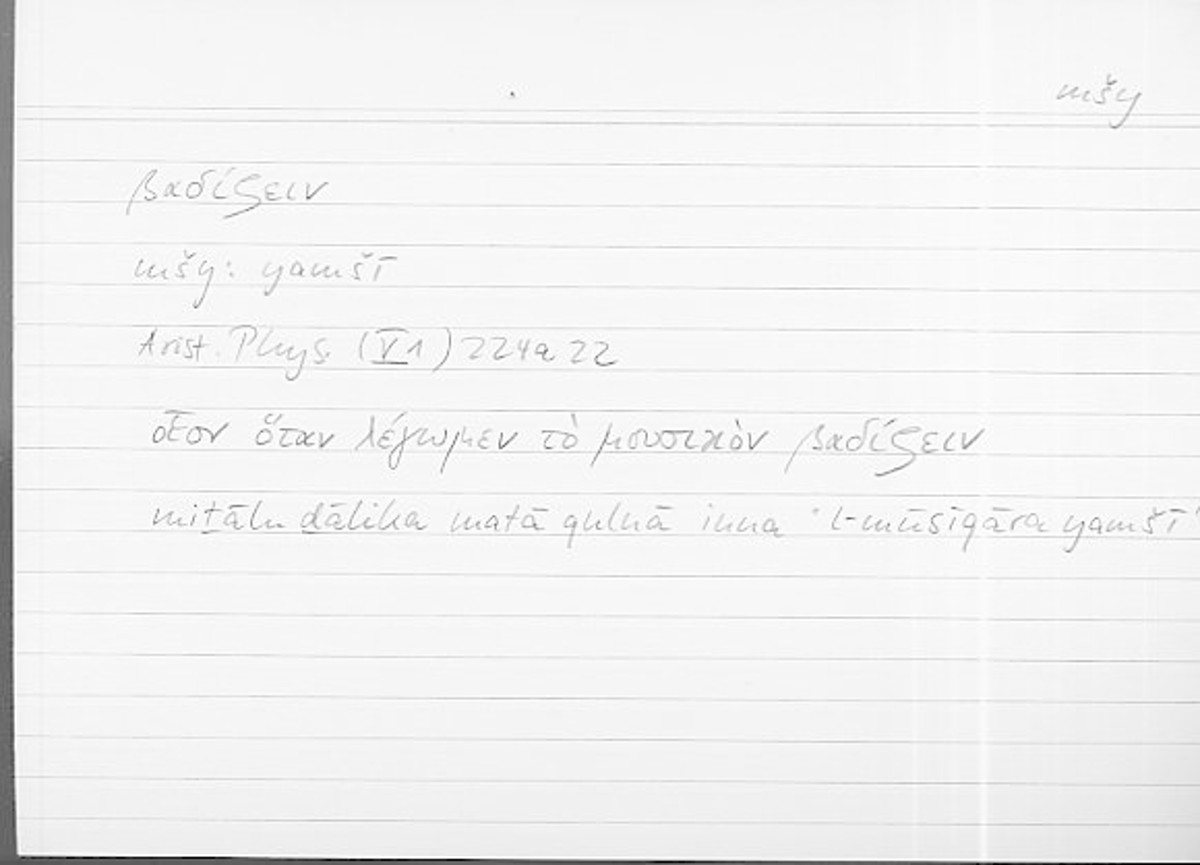 mšy
βαδίζειν
mšy: yamšī
Arist. Phys. (V 1) 224a22
οἷον ὅταν λέγωμεν τὸ μουσικὸν βαδίζειν
miṯālu ḏālika matā qulnā inna 'l-mūsīqāra yamšī